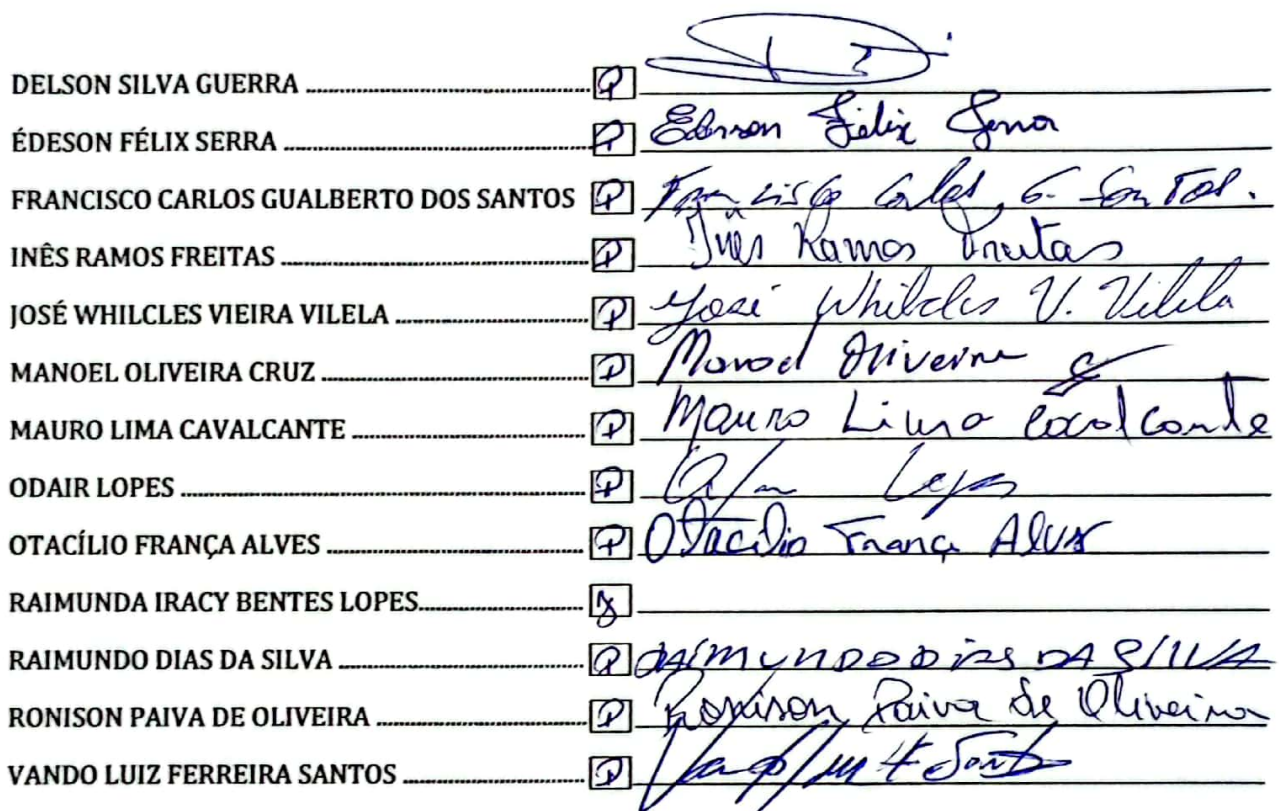 DELSON SILVA GUERRA ........................ P
ÉDESON FÉLIX SERRA ........................ P Ederson Félix Serra
FRANCISCO CARLOS GUALBERTO DOS SANTOS P Francisco Carlos G. Santos.
INÊS RAMOS FREITAS ........................ P Inês Ramos Freitas
JOSÉ WHILCLES VIEIRA VILELA ........................ P José Whilcles V. Vilela
MANOEL OLIVEIRA CRUZ ........................ P Manoel Oliveira
MAURO LIMA CAVALCANTE ........................ P Mauro Lima Cavalcante
ODAIR LOPES ........................ P Lopes
OTACÍLIO FRANÇA ALVES ........................ P Otacílio França Alves
RAIMUNDA IRACY BENTES LOPES ........................
RAIMUNDO DIAS DA SILVA ........................ P RAIMUNDO DIAS DA SILVA
RONISON PAIVA DE OLIVEIRA ........................ P Ronison Paiva de Oliveira
VANDO LUIZ FERREIRA SANTOS ........................ P